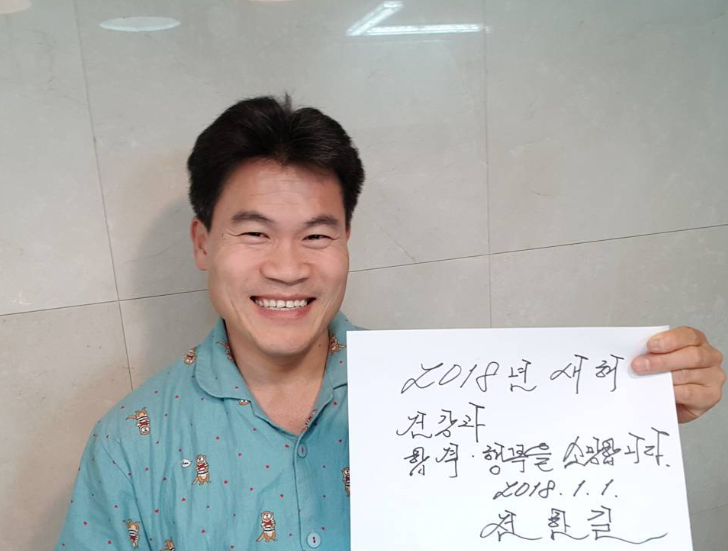 2018년 새해
건강과
합격·행복을 소망합니다.
2018.1.1.
전한길